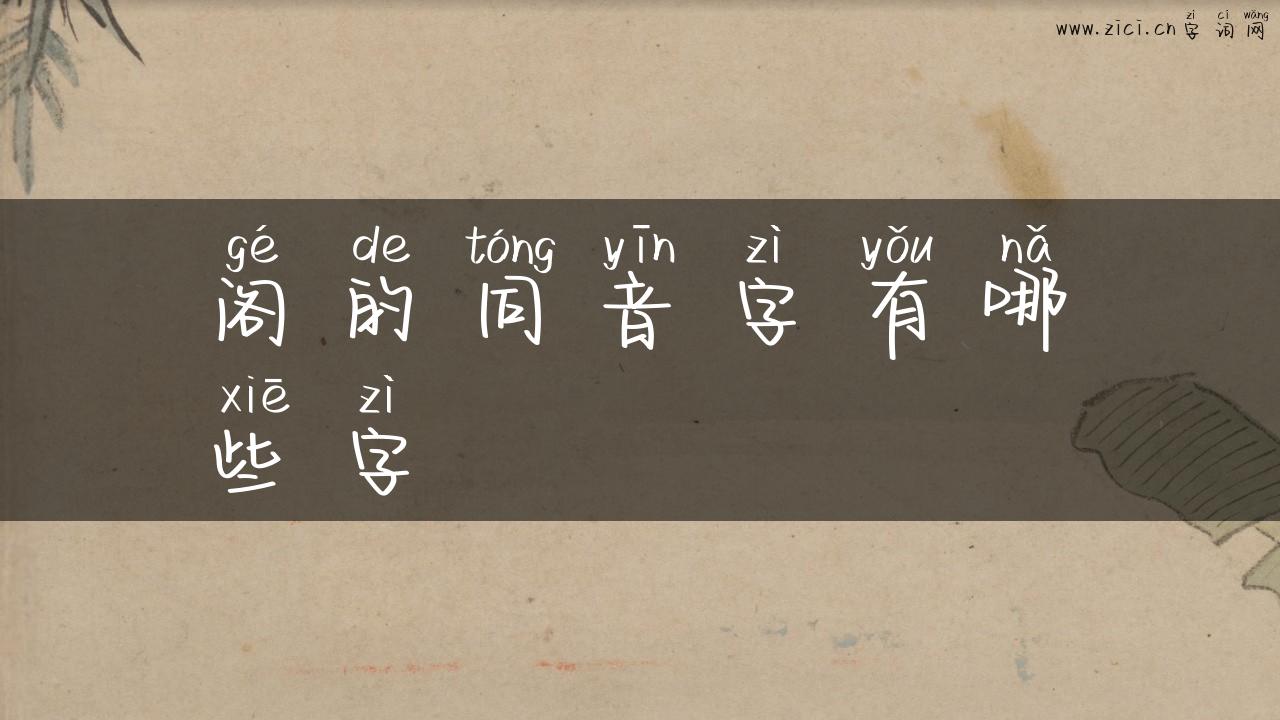 zì cí wǎng
www.zici.cn 字词网
gé de tóng yīn zì yǒu nǎ
阁的同音字有哪
xiē zì
些字